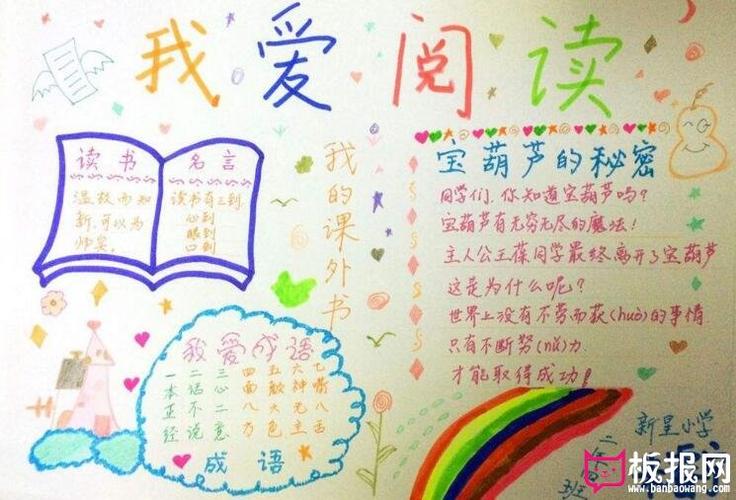 我爱阅读
读书 名言
温故而知
新,可以为
师矣。
读书有三到
心到
眼到
口到
我的课外书
宝葫芦的秘密
同学们,你知道宝葫芦吗?
宝葫芦有无穷无尽的魔法!
主人公王葆同学最终离开了宝葫芦
这是为什么呢?
世界上没有不劳而获(huò)的事情
只有不断努(nǔ)力
才能取得成功!
我爱成语
一本正经
二话不说
三心二意
四面八方
五颜六色
六神无主
七嘴八舌
成语
新星小学
板报网
www.banbaowang.com